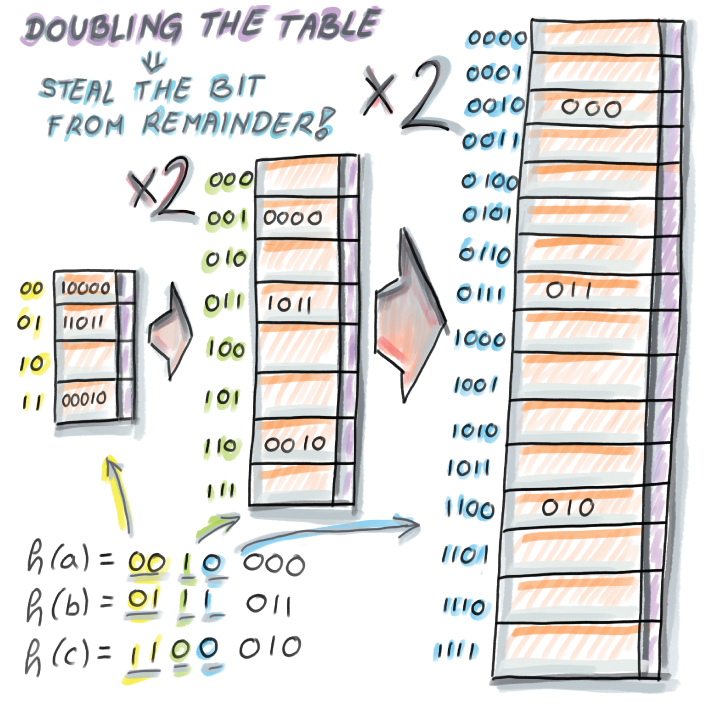 DOUBLING THE TABLE
STEAL THE BIT
FROM REMAINDER!
×2
×2
00 10000
01 11011
10
11 00010
000
001 0000
010
011 1011
100
101
110 0010
111
0000
0001
0010 000
0011
0100
0101
0110
0111 011
1000
1001
1010
1011
1100 010
1101
1110
1111
h(a) = 00 1 0 000
h(b) = 01 1 1 011
h(c) = 11 0 0 010